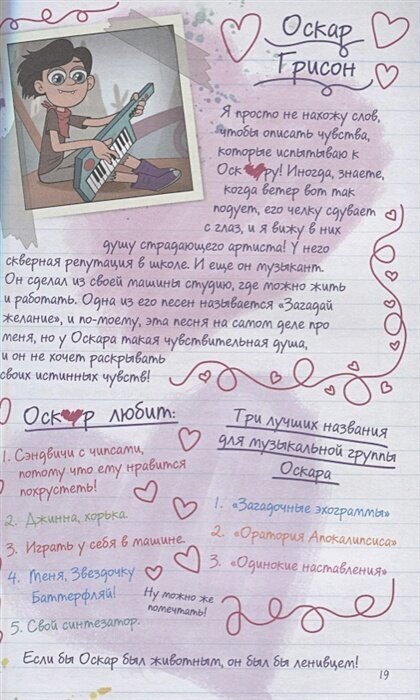 Оскар
Грисон
Я просто не нахожу слов,
чтобы описать чувства,
которые испытываю к
Оск❤ру! Иногда, знаете,
когда ветер вот так
подует, его челку сдувает
с глаз, и я вижу в них
душу страдающего артиста! У него
скверная репутация в школе. И еще он музыкант.
Он сделал из своей машины студию, где можно жить
и работать. Одна из его песен называется «Загадай
желание», и по-моему, эта песня на самом деле про
меня, но у Оскара такая чувствительная душа,
и он не хочет раскрывать
своих истинных чувств!
Оск❤р любит:
1. Сэндвичи с чипсами,
потому что ему нравится
похрустеть!
2. Джинна, хорька.
3. Играть у себя в машине.
4. Меня, Звездочку
Баттерфляй!
Ну можно же
помечтать!
5. Свой синтезатор.
Три лучших названия
для музыкальной группы
Оскара
1. «Загадочные эхограммы»
2. «Оратория Апокалипсиса»
3. «Одинокие наставления»
Если бы Оскар был животным, он был бы ленивцем!
19